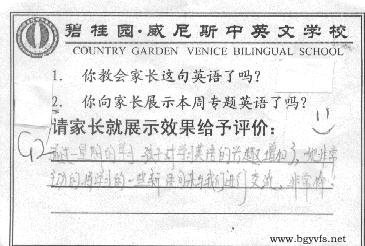 碧桂园·威尼斯中英文学校
COUNTRY GARDEN VENICE BILINGUAL SCHOOL
1. 你教会家长这句英语了吗?
2. 你向家长展示本周专题英语了吗?
请家长就展示效果给予评价:
G2
孩子对学习英语的兴趣增加了,他非常
主动的用学到的一些新单句来与我们进行交流,非常棒
www.bgyvfs.net